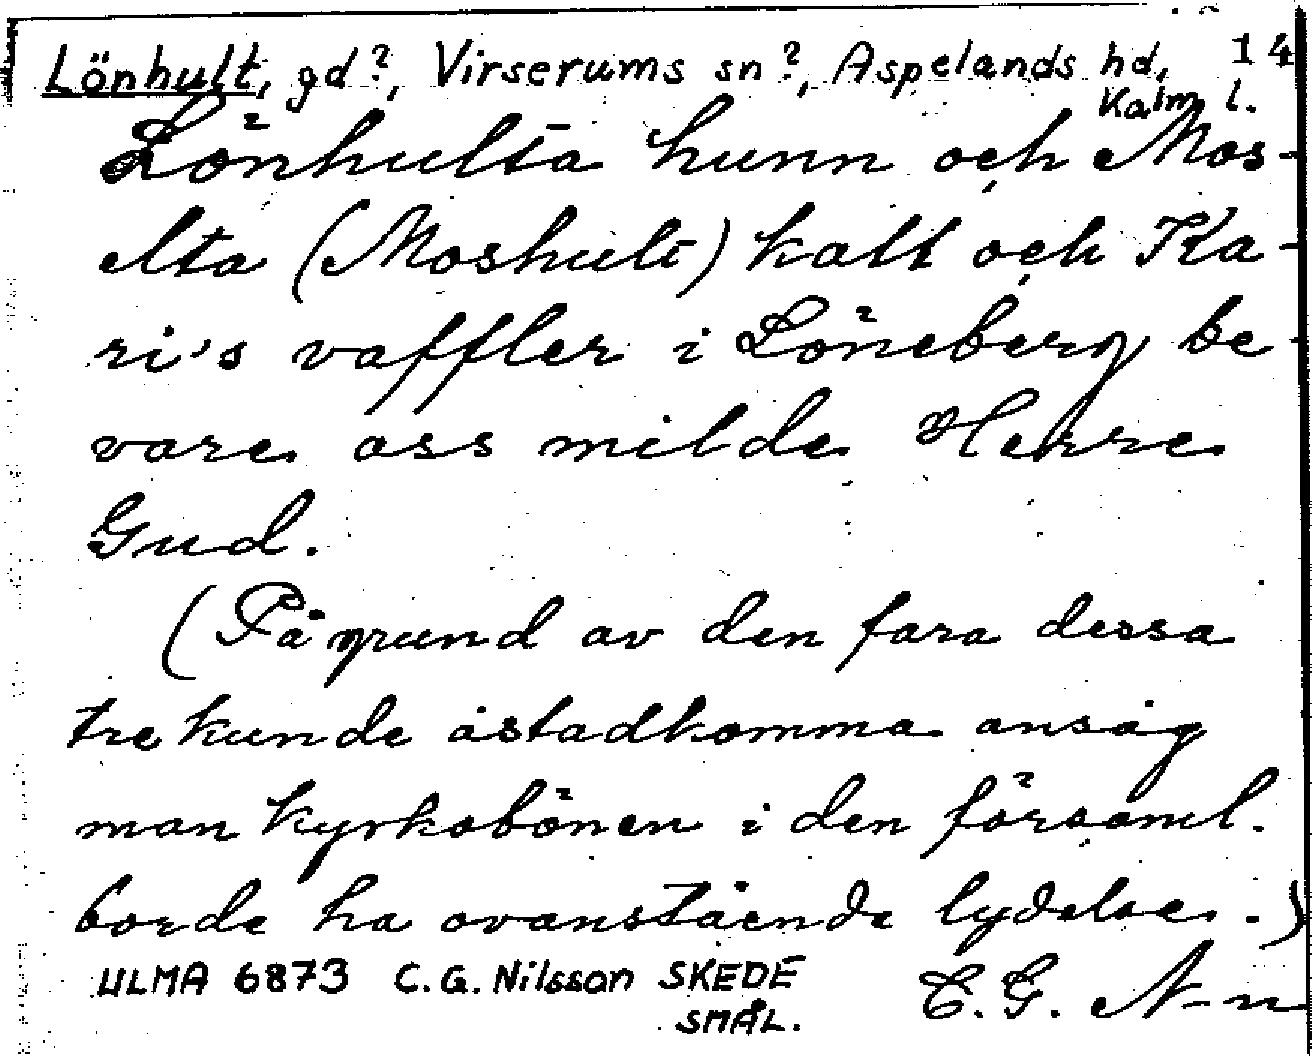 Lönhult, gd?, Virserums sn?, Aspelands hd, 14
Kalm l.
Lönhulta hunn och Mos-
elta (Moshult) katt och Ka-
ri's vaffler i Löneberg be-
vare oss milde Herre
Gud.
(På grund av den fara dessa
tre kunde åstadkomma ansåg
man kyrkobönen i den församl.
borde ha ovanstående lydelse.)
ULMA 6873 C.G. Nilsson SKEDE
SMÅL.
C.G. N-n